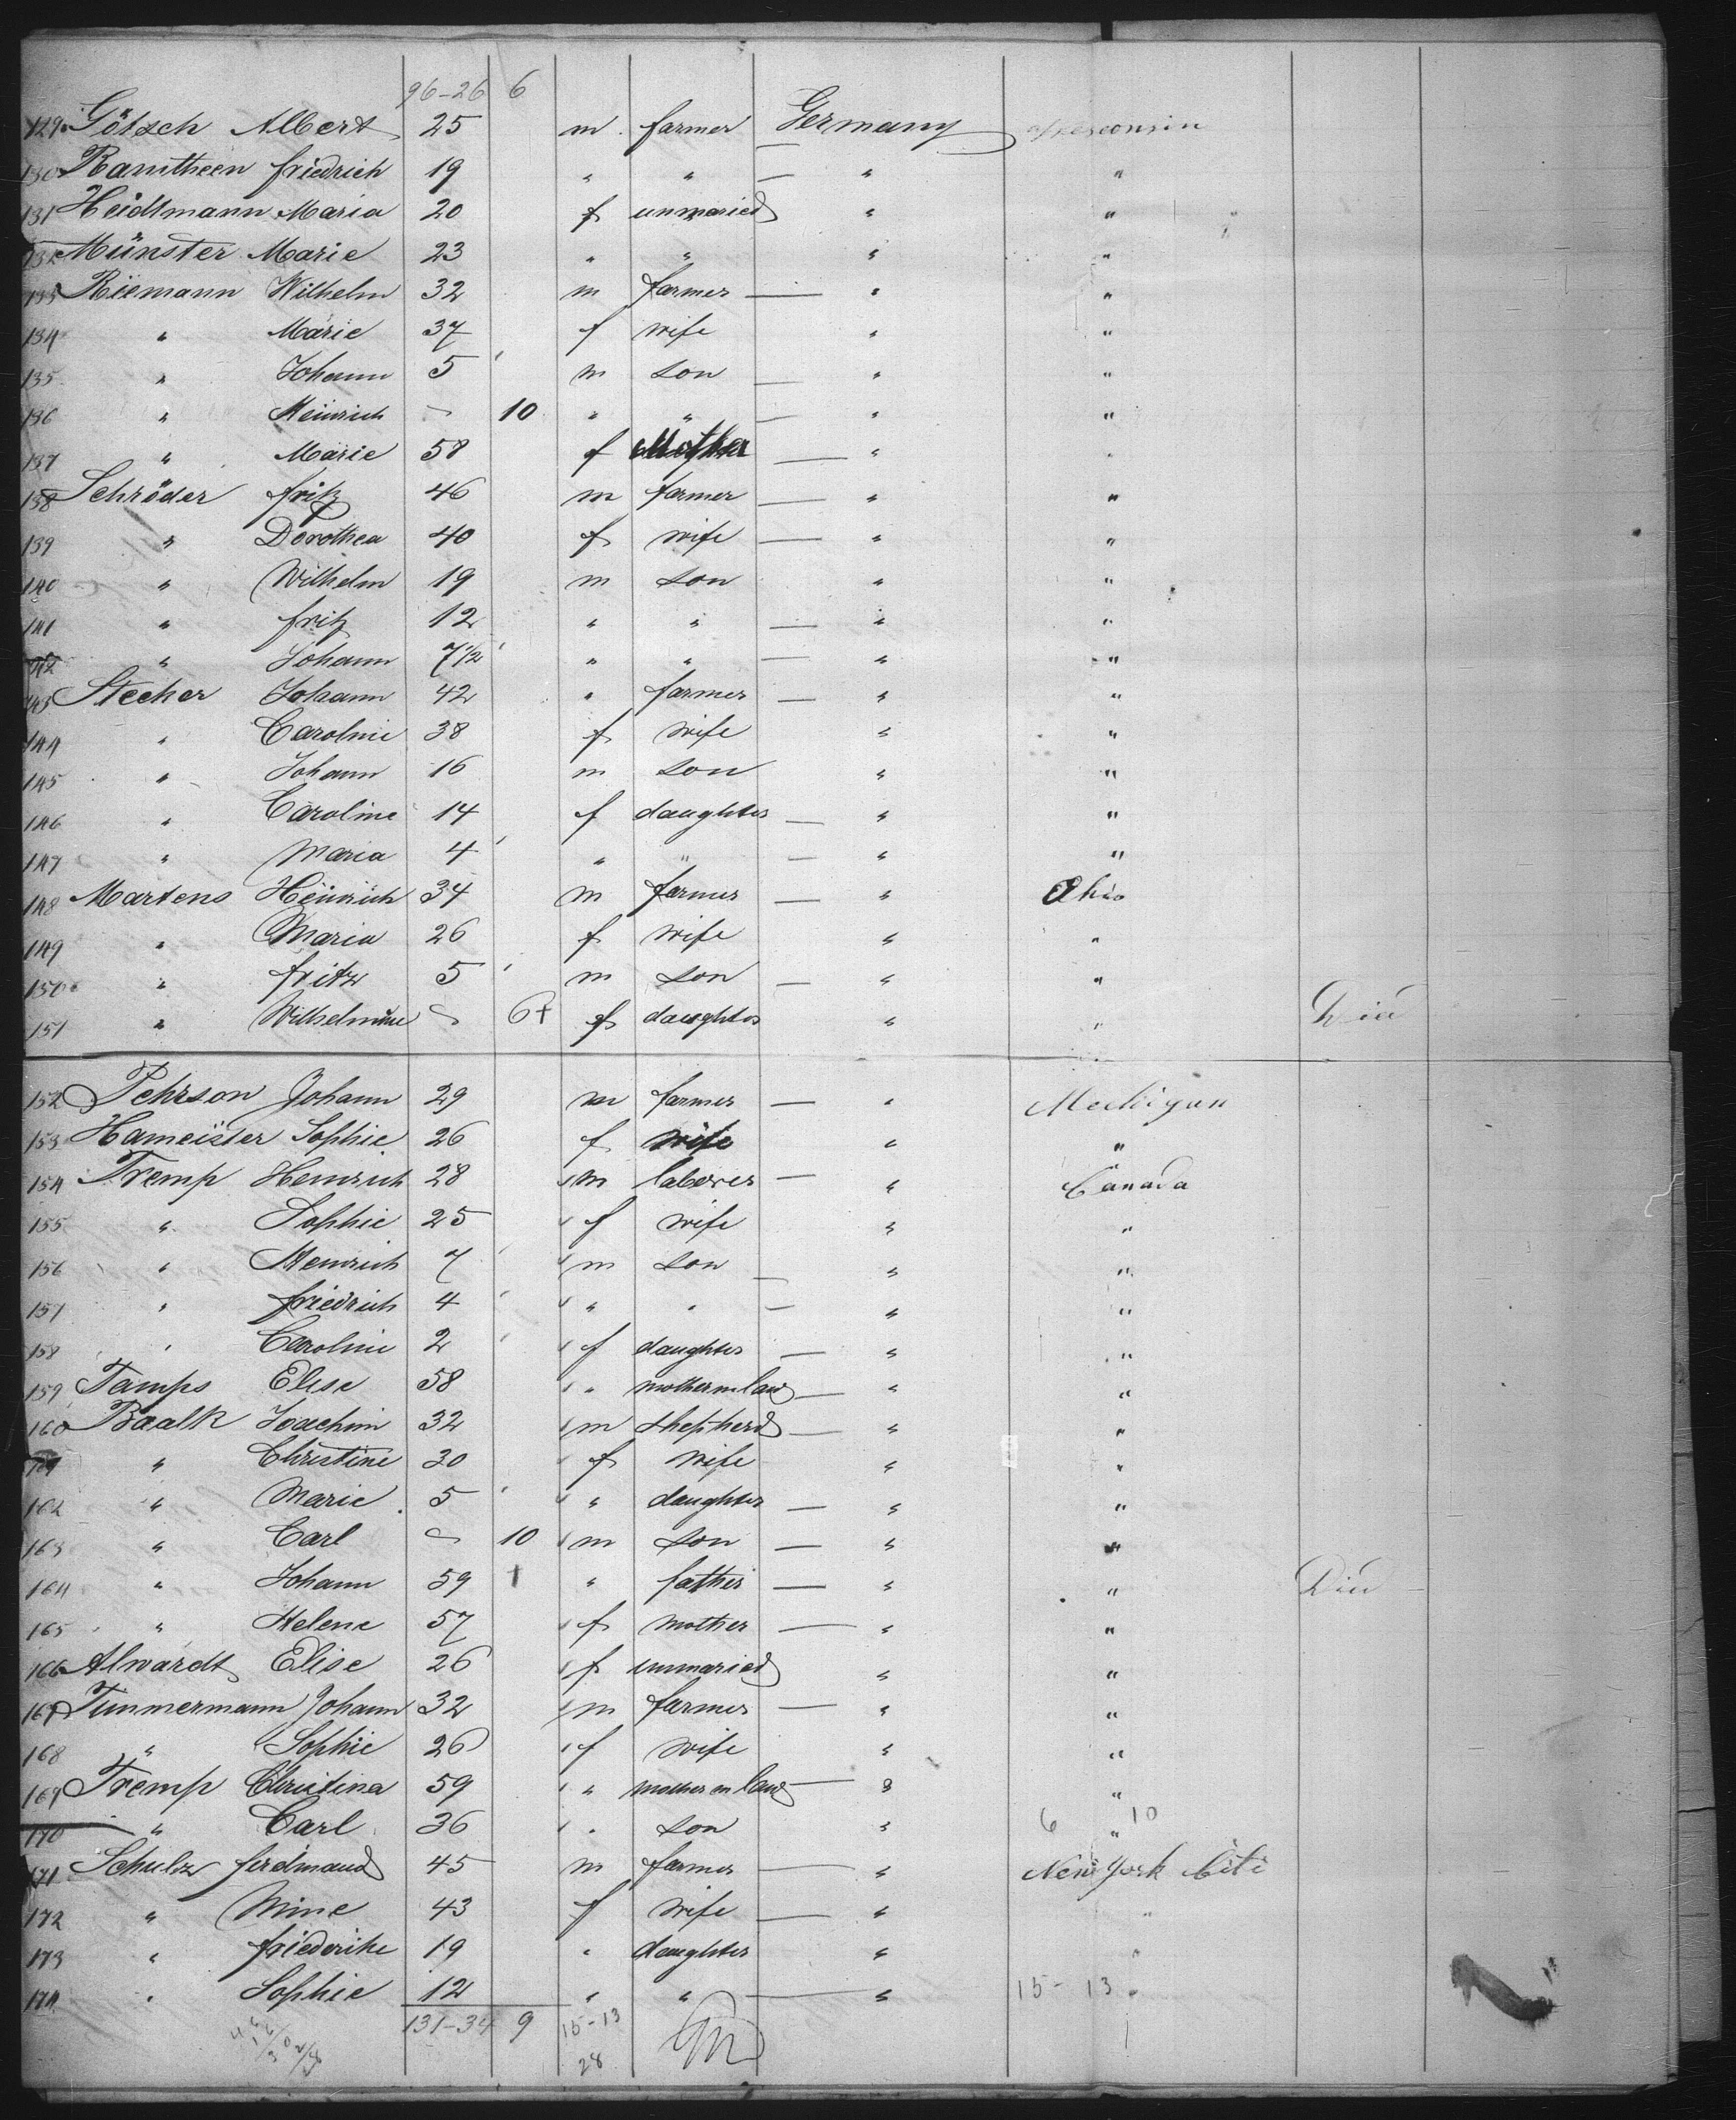 96-26 6
129 Götsch Albert 25 m farmer Germany Wisconsin
130 Ramtheen friedrich 19 " " — " "
131 Heidtmann Maria 20 f unmaried " "
132 Münster Marie 23 " " " "
133 Riemann Wilhelm 32 m farmer — " "
134 " Marie 37 f wife " "
135 " Johann 5 m son — " "
136 " Heinrich 10 " " — " "
137 " Marie 58 f Mother — " "
138 Schröder fritz 46 m farmer — " "
139 " Dorothea 40 f wife — " "
140 " Wilhelm 19 m son " "
141 " fritz 12 " " — " "
142 " Johann 7 1/2 " " — " "
143 Stecker Johann 42 " farmer — " "
144 " Caroline 38 f wife " "
145 " Johann 16 m son " "
146 " Caroline 14 f daughter — " "
147 " Maria 4 " " — " "
148 Martens Heinrich 34 m farmer — " Ohio
149 " Maria 26 f wife " "
150 " fritz 5 m son — " "
151 " Wilhelmine 6+ f daughter " " Died
152 Pehrson Johann 29 m farmer — " Michigan
153 Hameister Sophie 26 f wife " "
154 Tremp Heinrich 28 m laborer — " Canada
155 " Sophie 25 f wife " "
156 " Heinrich 7 m son — " "
157 " friedrich 4 " " — " "
158 " Caroline 2 f daughter — " "
159 Tamps Elise 58 " mother in law — " "
160 Baalk Joachim 32 m shepherd — " "
161 " Christine 30 f wife " "
162 " Marie 5 " daughter — " "
163 " Carl 10 m son — " "
164 " Johann 59 + " father — " " Died
165 " Helene 57 f mother — " "
166 Alwardt Elise 26 f unmaried " "
167 Timmermann Johann 32 m farmer — " "
168 " Sophie 26 f wife " "
169 Tremp Christina 59 " mother in law — " "
170 " Carl 36 " son " 6 " 10
171 Schulz ferdinand 45 m farmer — " New York Citi
172 " Mine 43 f wife — " "
173 " friederike 19 " daughter " "
174 " Sophie 12 " " — " 15-13 "
131-34 9 15-13
28